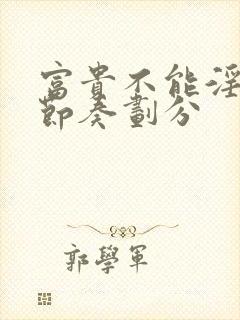 富貴不能淫
節奏劃分
郭學軍